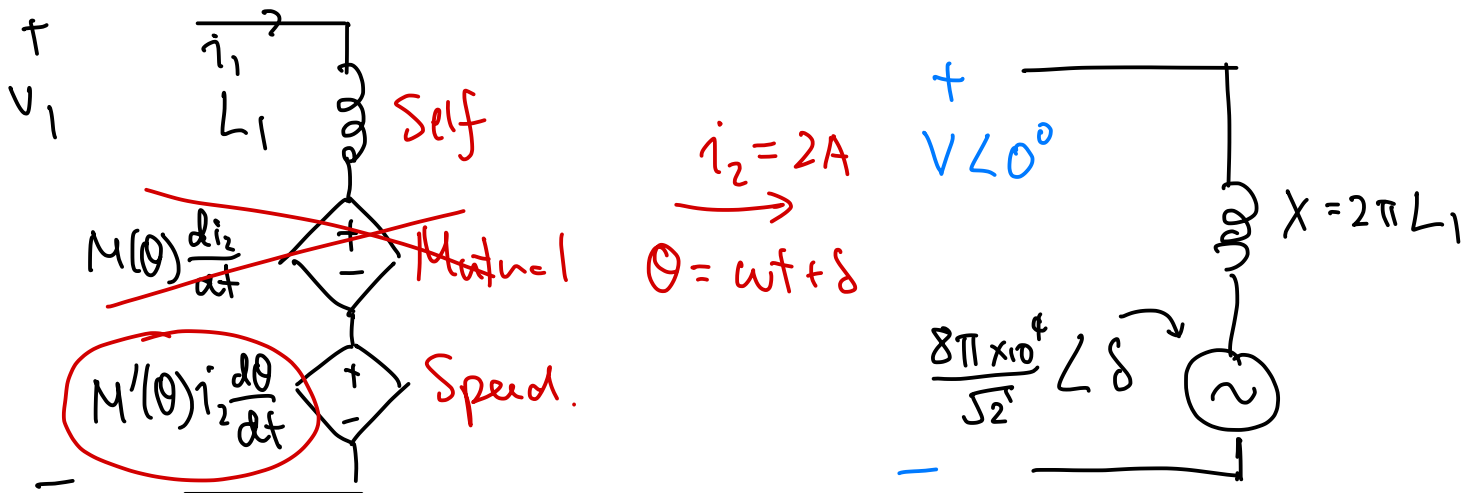 +
V₁
i₁
L₁
Self
M(θ) di₂/dt
+
−
Mutual
M'(θ) i₂ dθ/dt
+
−
Speed.
−
i₂ = 2A
θ = ωt + δ
+
V∠0°
X = 2πL₁
8π×10⁴/√2 ∠δ
~
−